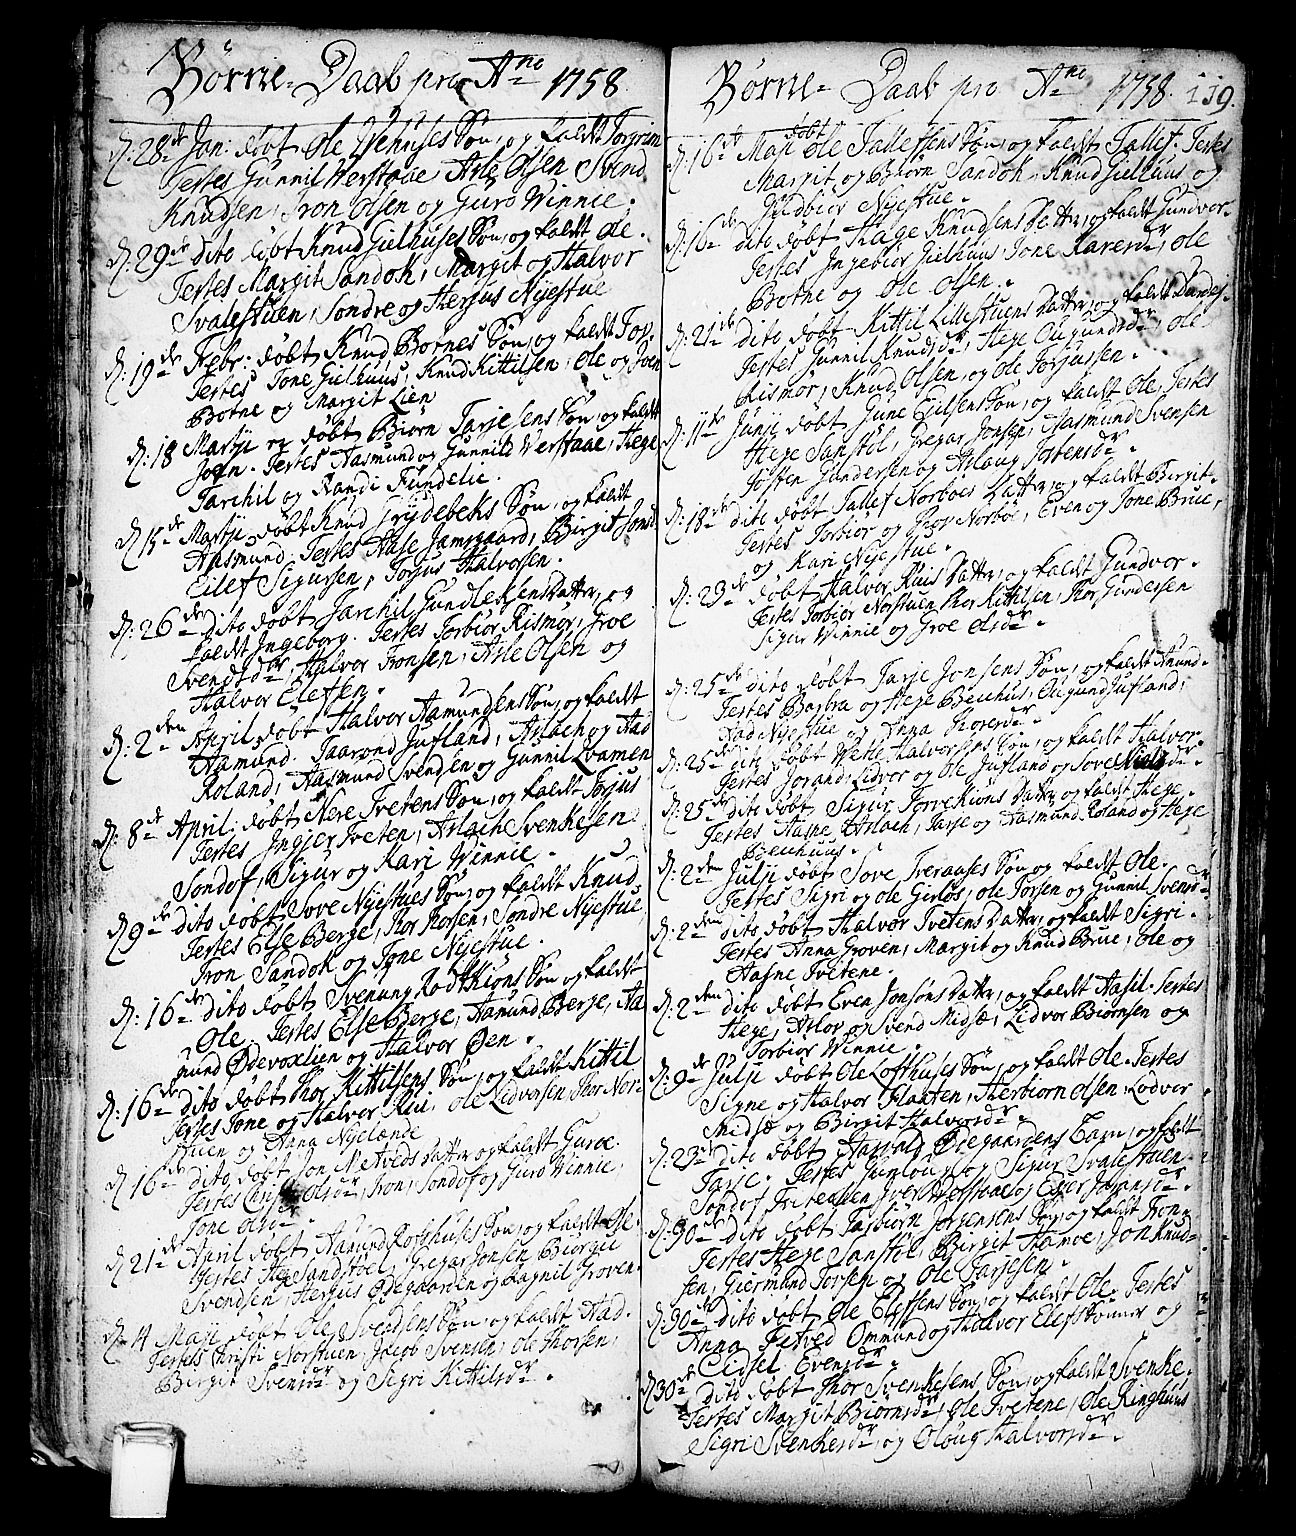 Børne-Daab pro Ano 1758.
D: 28de Jan: døbt Ole Vehuses Søn, og kaldt Torgrim
Testes Gunnil Werstaae, Asle Olsen Svend
Knudsen, Tron Olsen og Guro Winnie.
D: 29de dito døbt Knud Gielhuses Søn, og kaldt Ole.
Testes Margit Sandok, Margit og Halvor
Svalestuen, Sondre og Herjus Nyestue
D: 19de Febr: døbt Knud Botnes Søn, og kaldt Tov.
Testes Tone Gielhuus, Knud Kittilsen, Ole og Joen
Botne og Margit Lien
D: 18 Martji døbt Biørn Tarjesens Søn, og kaldt
John. Testes Aasmund og Gunnild Werstaae, Hege
Tarchil og Randi Fundelie.
D 15de Martji døbt Knud Grydebeks Søn, og kaldt
Aasmund. Testes Aase Jamsgaard, Birgit
Eilef Sigursen, Torjus Halvorsen.
D: 26de dito døbt Tarchil Gundleksens Datter, og
kaldt Ingeborg. Testes Torbiør Rismor, Groe
Svendsdr, Halvor Tronsen, Asle Olsen og
Halvor Elefsen.
D: 2den April døbt Halvor Aamundsens Søn, og kaldt
Aamund. Taarond Jufland, Aslach og Aad
Roland, Aasmund Svendsen og Gunnil Qvamen
D: 8de April: døbt Nere Tvetens Søn, og kaldt Torjus
Testes Ingier Tveten, Aslach Svenkesen
Sondof, Sigur og Kari Winnie.
D 9de dito døbt Sove Nyestues Søn, og kaldt Knud
Testes Else Berge, Thor Thorsen, Sondre Nyestue
Tron Sandok og Tone Nyestue.
D: 16de dito døbt Svenung Rodtkions Søn og kaldt
Ole. Testes Else Berge, Aamund Berge, Aa
mund Ødevoxlien og Halvor Øen.
D: 16de dito døbt Thor Kittilsens Søn, og kaldt Kittil
Testes Tone og Halvor Rui, Ole Lidvorsen Thor Nor-
stuen og Anna Nyelænde
D 16de dito døbt Jon Metveds Datter og kaldt Guroe.
Testes Olsdr, Tron, Sondof og Guro Winnie,
Tone Olsdr.
D 21de April døbt Aamund Rolghuses Søn, og kaldt Ole.
Testes Hege Sandstoel, Gregar Jonsen Biørgu
Svendsen, Herjus Ødegaarden og Ragnil Groven.
D. 4 Maji døbt Ole Svendsens Søn, og kaldt Aad.
Testes Christi Norstuen, Jacob Svensen, Ole Thorsen,
Birgit Svensdr og Sigri Kittilsdr.
Børne- Daab pro Ano 1758. 119.
D. 16de Maji døbt Ole Tallefsens Søn, og kaldt Tallef. Testes
Margit og Biørn Sandok, Knud Gielhuus og
Nyestue.
D: 16de dito døbt Hage Knudsens Datter, og kaldt Gundvor.
Testes Ingebiør Gielhuus, Tone Karesdr, Ole
Bothe og Ole Olsen.
D: 21de dito døbt Kittil Lillestuens Datter, og kaldt
Testes Gunnil Knudsdr, Hege Ougundsdr, Ole
Rismor, Knud Olsen, og Ole Torjussen.
D: 11te Junij døbt Gune Eilsens Søn, og kaldt Ole, Testes
Hege Sanstøl, Gregar Jonsen, Aasmund Svensen
Josten Gundersen og Aslaug Jostensdr.
D: 18de dito døbt Tallef Norboes Datter, og kaldt Birgit.
Testes Torbiør og Thor Norboe, Even og Tone Brue,
og Kari Nyestue.
D: 23de døbt Halvor Ruis Datter, og kaldt Gundvor.
Testes Torbiør Norstuen Thor Kittilsen, Thor Gundersen
Sigur Winnie og Groe Olsdr.
D: 25de dito døbt Tarje Jonsens Søn, og kaldt Amund.
Testes Barbra og Hege Beenhus, Ougund Jufland,
Aad Nyestue og Anna Thoresdr.
D: 25de dito døbt Wetle Halvorsens Søn, og kaldt Halvor.
Testes Jorand, Lidvor og Ole Jufland og Sove Nielsdr.
D: 25de dito døbt Sigur Torvekions Datter og kaldt Hege.
Testes Aasne Aslach, Tarje og Aasmund Roland og Hege
Beenhuus.
D: 2den Julji døbt Sove Treraases Søn og kaldt Ole.
Testes Sigri og Ole Girlos, Ole Torsen og Gunnil Svensdr.
D: 2den dito døbt Halvor Tvetens Datter, og kaldt Sigri.
Testes Anna Groven, Margit og Knud Brue, Ole og
Aasne Tvetene.
D: 2den dito døbt Even Jonsøns Datter, og kaldt Aasil. Testes
Hege, Aslov og Svend Midsæ, Lidvor Biørnsen og
Torbiør Winnie.
D: 9de Julji døbt Ole Lofthuses Søn, og kaldt Ole. Testes
Signe og Halvor Flaaten, Herbiørn Olsen, Lødvor
Midsæ og Birgit Halvorsdr.
D: 23de dito døbt Harald Ødegaardens Barn, og kaldt
Tarje. Testes Gunloug og Sigur Svalestuen
Sondof Iver Wefstaae og Ester Johansdr.
D: 30de dito døbt Tarbiørn Jørgensens Søn, og kaldt Tron
Testes Hege Sanstøl, Birgit Hamoe, Jon Knud-
sen, Giermund Torsen og Ole Tarjesen.
D: 30de dito døbt Ole Elefsens Søn, og kaldt Ole. Testes
Anna Fitved Ommund og Halvor Elefs Sønner og
Cidsel Evensdr.
D 30de dito døbt Thor Svenkesens Søn, og kaldt Svenke.
Testes Margit Biørnsdr, Ole Tvetene, Ole Ringhuus
Sigri Svenkesdr, og Oloug Halvorsdr.